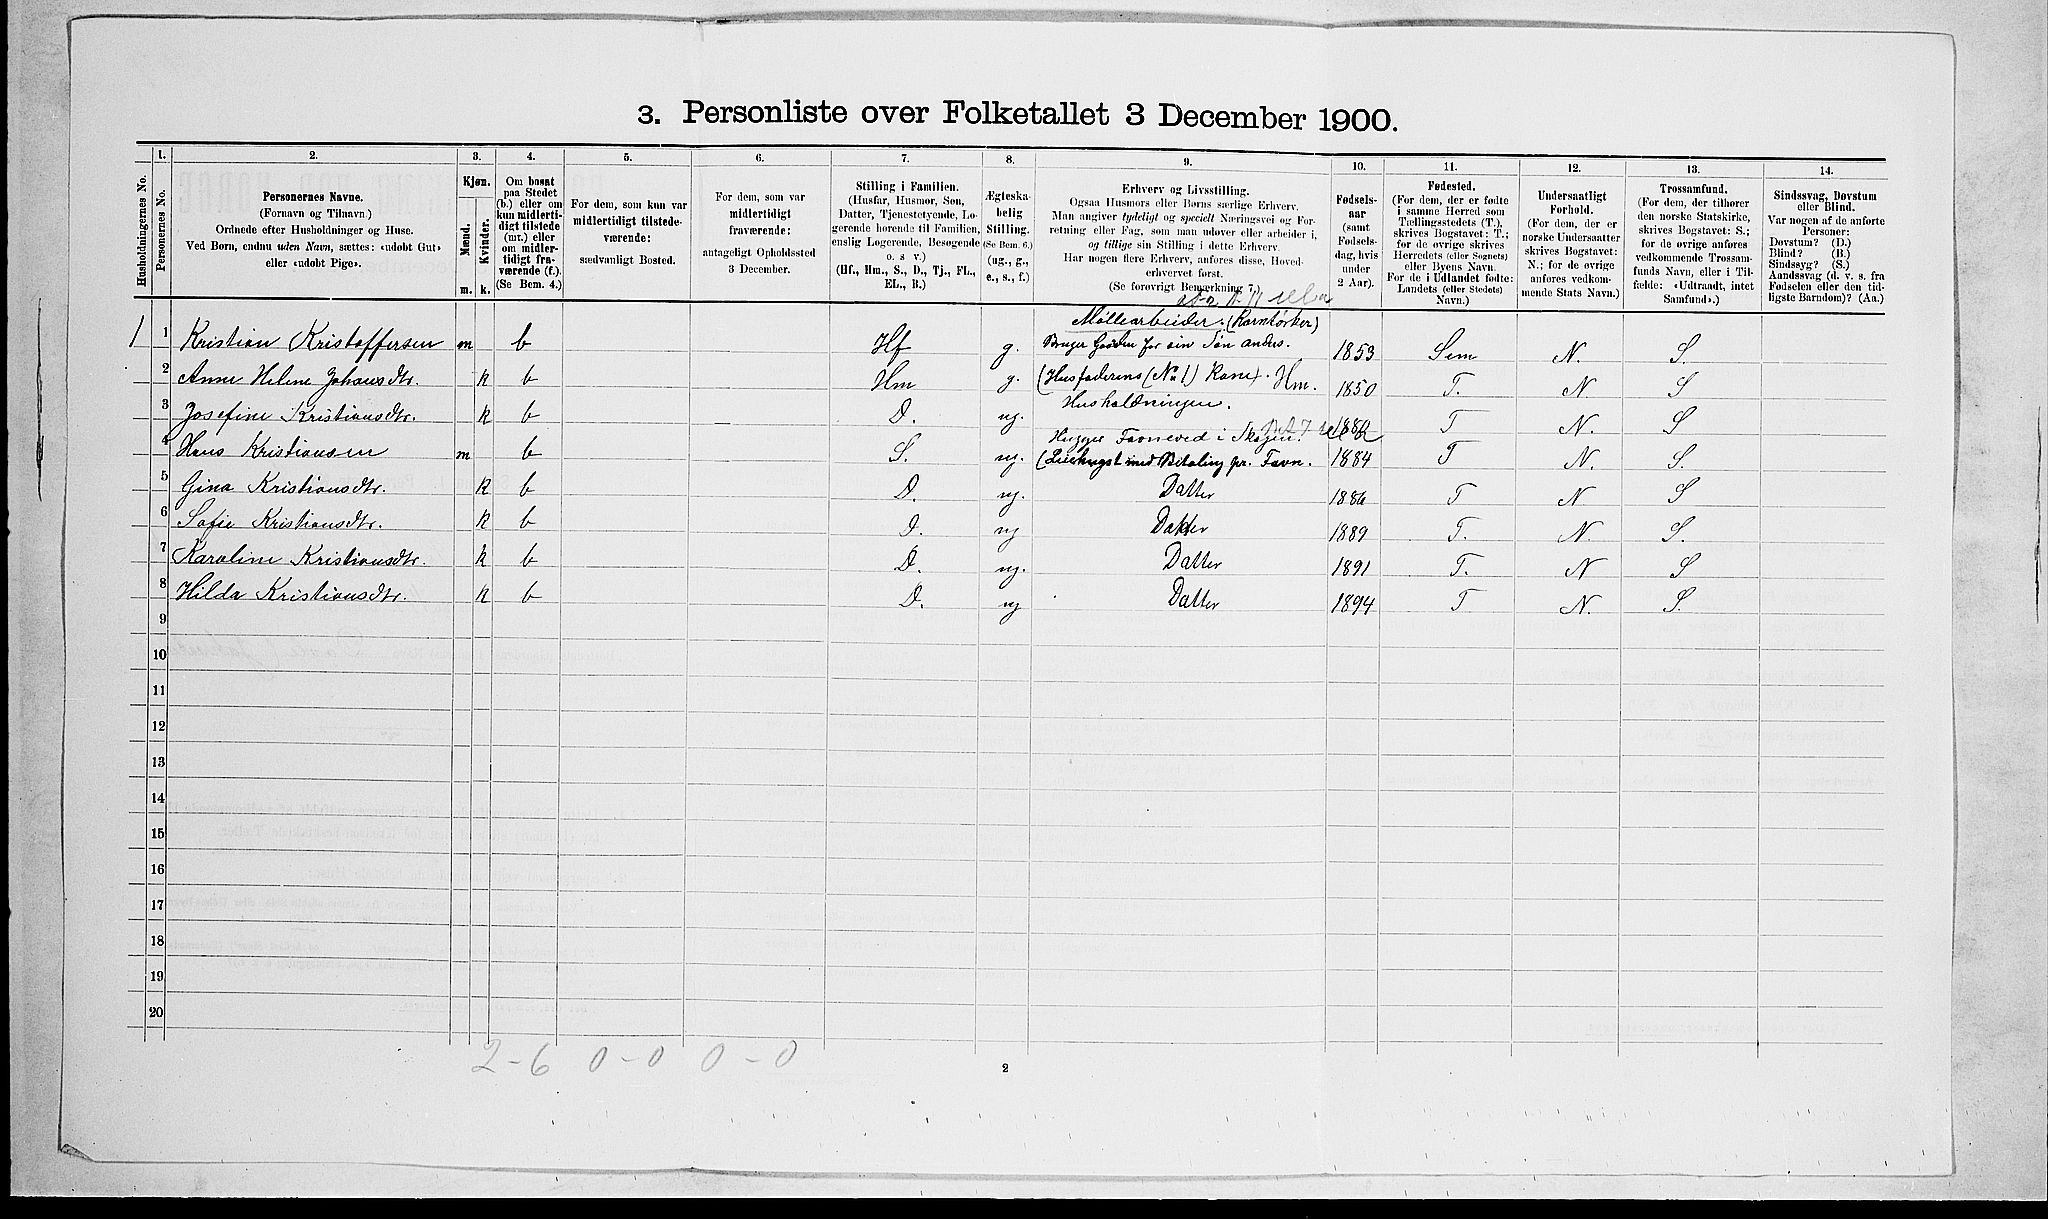 3. Personliste over Folketallet 3 December 1900.
Husholdningernes No.
1. Personernes No.
2. Personernes Navne.
(Fornavn og Tilnavn.)
Ordnede efter Husholdninger og Huse.
Ved Børn, endnu uden Navn, sættes: «udøbt Gut»
eller «udøbt Pige».
3. Kjøn.
Mænd. m.
Kvinder. k.
4. Om bosat
paa Stedet
(b.) eller om
kun midlerti-
digt tilstede
(mt.) eller
om midler-
tidigt fra-
værende (f.).
(Se Bem. 4.)
5. For dem, som kun var
midlertidigt tilstede-
værende:
sædvanligt Bosted.
6. For dem, som var
midlertidigt
fraværende:
antageligt Opholdssted
3 December.
7. Stilling i Familien.
(Husfar, Husmor, Søn,
Datter, Tjenestetyende, Lo-
gerende hørende til Familien,
enslig Logerende, Besøgende
o. s. v.)
(Hf., Hm., S., D., Tj., FL.,
EL., B.)
8. Ægteska-
belig
Stilling.
(Se Bem. 6.)
(ug., g.,
e., s., f.)
9. Erhverv og Livsstilling.
Ogsaa Husmors eller Børns særlige Erhverv.
Man angiver tydeligt og specielt Næringsvei og For-
retning eller Fag, som man udøver eller arbeider i,
og tillige sin Stilling i dette Erhverv.
Har nogen flere Erhverv, anføres disse, Hoved-
erhvervet først.
(Se forøvrigt Bemerkning 7.)
10. Fødsels-
aar
(samt
Fødsels-
dag, hvis
under
2 Aar).
11. Fødested.
(For dem, der er fødte
i samme Herred som
Tællingsstedets (T.),
skrives Bogstavet: T.;
for de øvrige skrives
Herredets (eller Sognets)
eller Byens Navn.
For de i Udlandet fødte:
Landets (eller Stedets)
Navn.)
12. Undersaatligt
Forhold.
(For dem, der er
norske Undersaatter
skrives Bogstavet:
N.; for de øvrige
anføres vedkom-
mende Stats Navn.)
13. Trossamfund.
(For dem, der tilhører
den norske Statskirke,
skrives Bogstavet: S.;
for de øvrige anføres
vedkommende Trossam-
funds Navn, eller i Til-
fælde: «Udtraadt, intet
Samfund».)
14. Sindssvag, Døvstum
eller Blind.
Var nogen af de anførte
Personer:
Døvstum? (D.)
Blind? (B.)
Sindssyg? (S.)
Aandssvag (d. v. s. fra
Fødselen eller den tid-
ligste Barndom)? (Aa.)
Møllearbeider. (Korntørker)
1 1 Kristian Kristoffersen m b Hf g. Bruger Gaarden for sin Søn anders. 1853 Sem N. S.
2 Anne Helene Johansdtr. k b Hm g. (Husfaderens (No 1) Kone). Hm. 1850 T. N S
Husholdningen.
3 Josefine Kristiansdtr. k b D. ug. 1882 T N. S
Hugger Favneved i Skogen.
4 Hans Kristiansen m b S. ug. med Betaling pr. Favn. 1884 T N. S.
5 Gina Kristiansdtr. k b D. ug. Datter 1886 T N S
6 Sofie Kristiansdtr. k b D. ug Datter 1889 T. N. S.
7 Karoline Kristiansdtr. k b D. ug. Datter 1891 T. N S
8 Hilda Kristiansdtr. k b D. ug Datter 1894 T N. S.
9
10
11
12
13
14
15
16
17
18
19
20
2-6 0-0 0-0
2